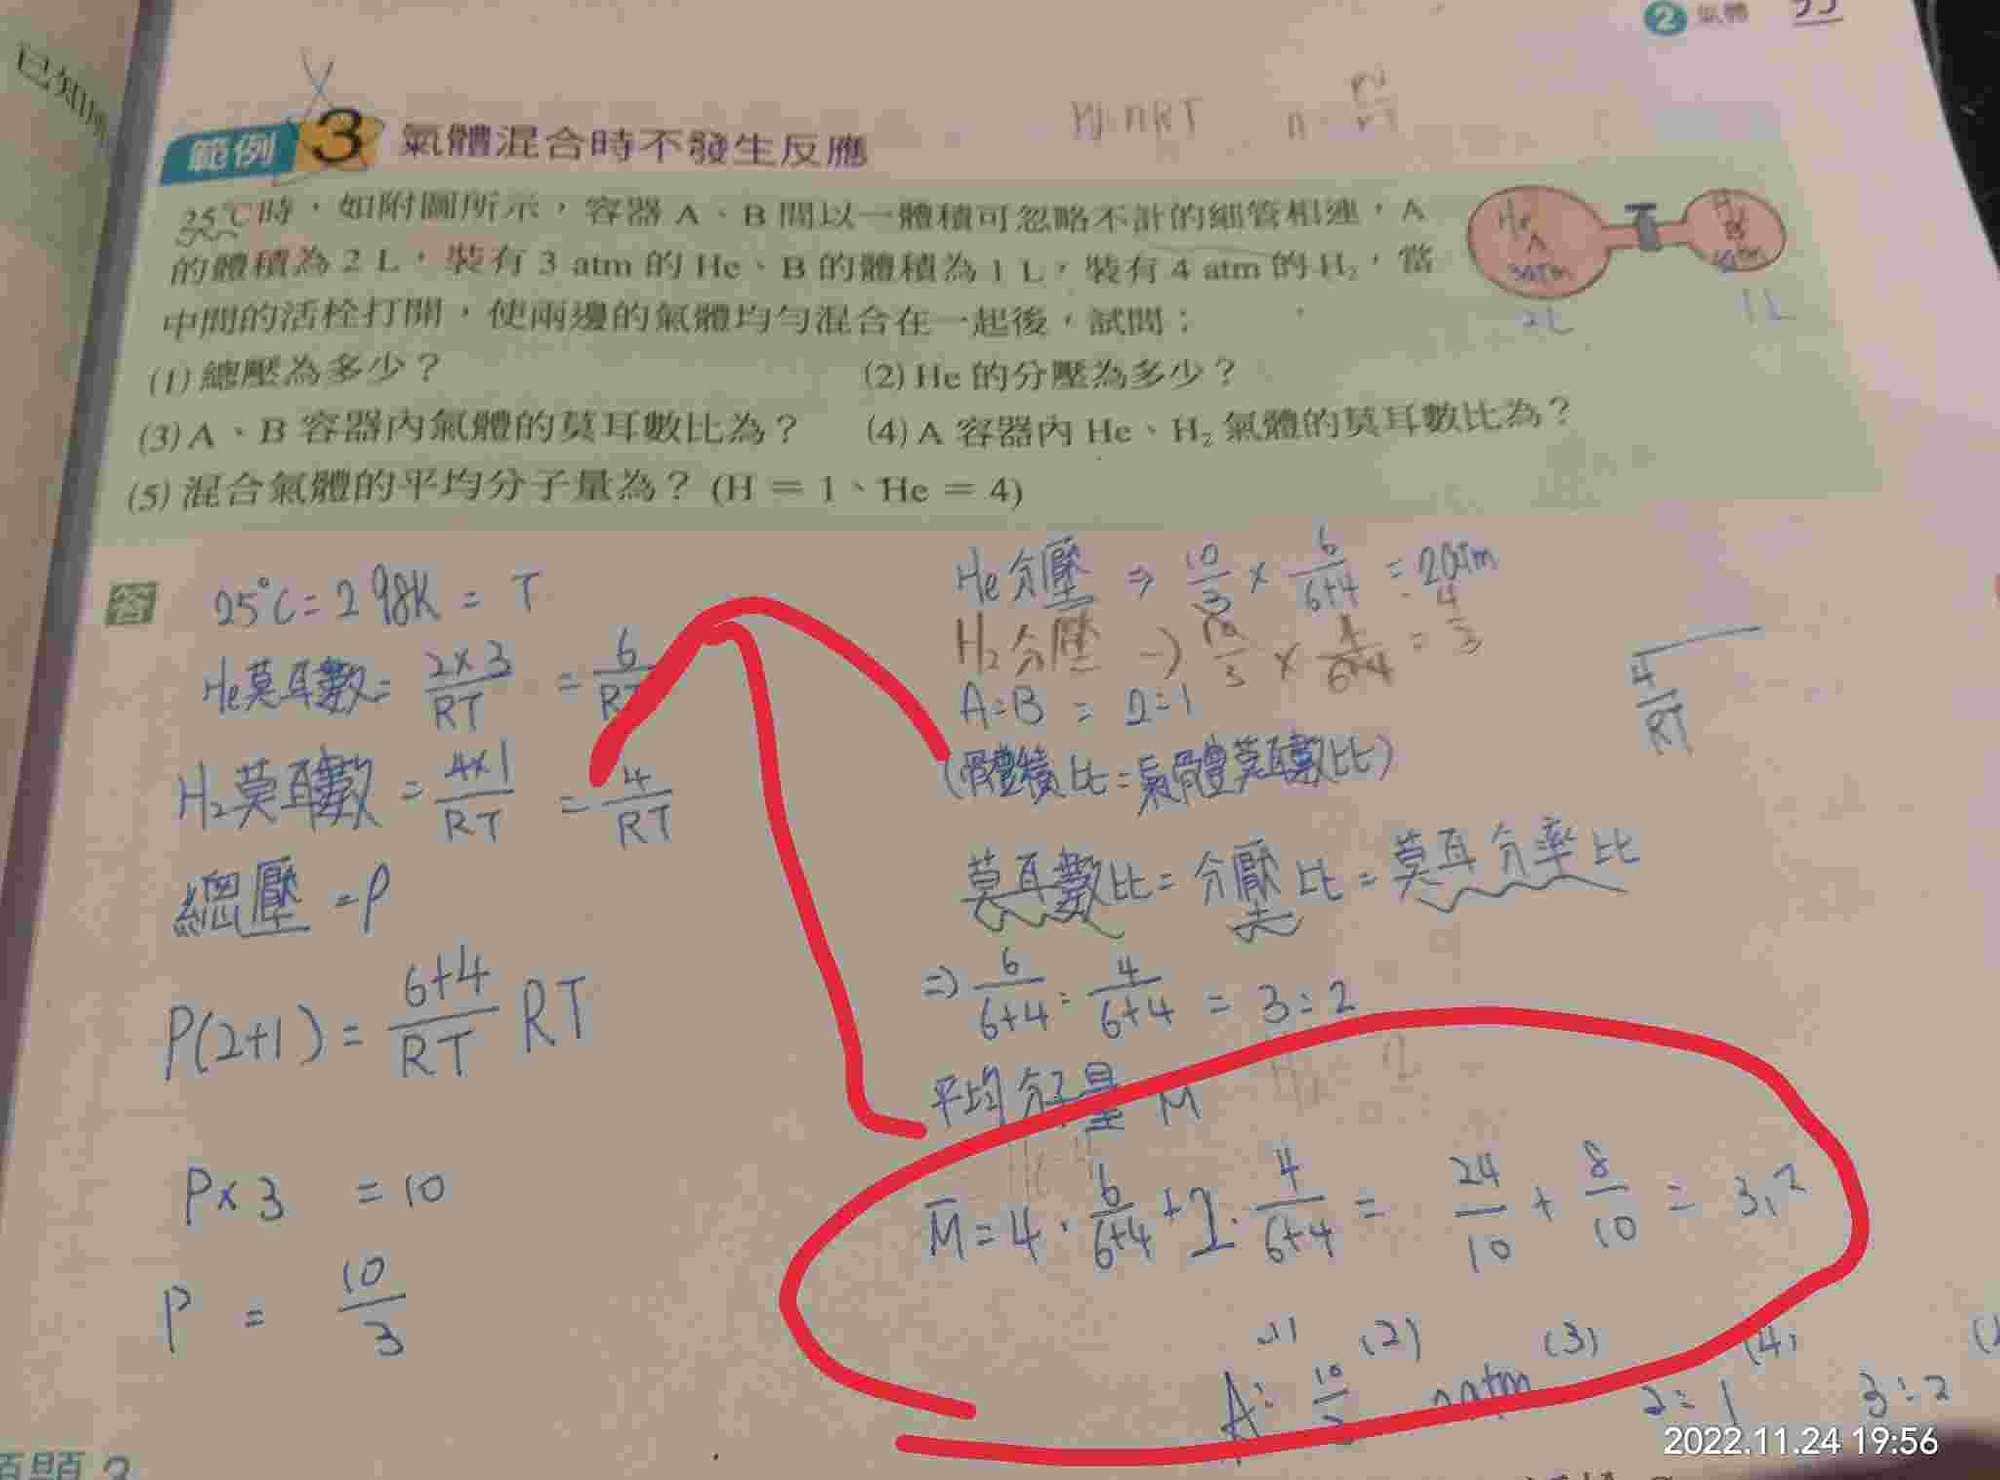 ② 氣體
已知
PV=nRT n=PV/RT
範例 3 氣體混合時不發生反應
25℃時，如附圖所示，容器 A、B 間以一體積可忽略不計的細管相連，A
的體積為 2 L，裝有 3 atm 的 He、B 的體積為 1 L，裝有 4 atm 的 H₂，當
中間的活栓打開，使兩邊的氣體均勻混合在一起後，試問：
He A 3atm 2L
B 1L
(1) 總壓為多少？ (2) He 的分壓為多少？
(3) A、B 容器內氣體的莫耳數比為？ (4) A 容器內 He、H₂ 氣體的莫耳數比為？
(5) 混合氣體的平均分子量為？(H = 1、He = 4)
答 25℃=298K = T
He莫耳數= 2×3/RT = 6/RT
H₂莫耳數 = 4×1/RT = 4/RT
總壓 =P
P(2+1) = 6+4/RT RT
P×3 = 10
P = 10/3
He分壓 ⇒ 10/3 × 6/6+4 = 2atm
H₂分壓 → 10/3 × 4/6+4 = 4/3
A:B = 2:1
(體積比=氣體莫耳數比)
4/RT
莫耳數比=分壓比=莫耳分率比
⇒ 6/6+4 : 4/6+4 = 3:2
平均分子量 M
M̄=4·6/6+4+2·4/6+4 = 24/10 + 8/10 = 3.2
(1) (2) (3) (4)
A: 10/3 2atm 2:1 3:2
2022.11.24 19:56